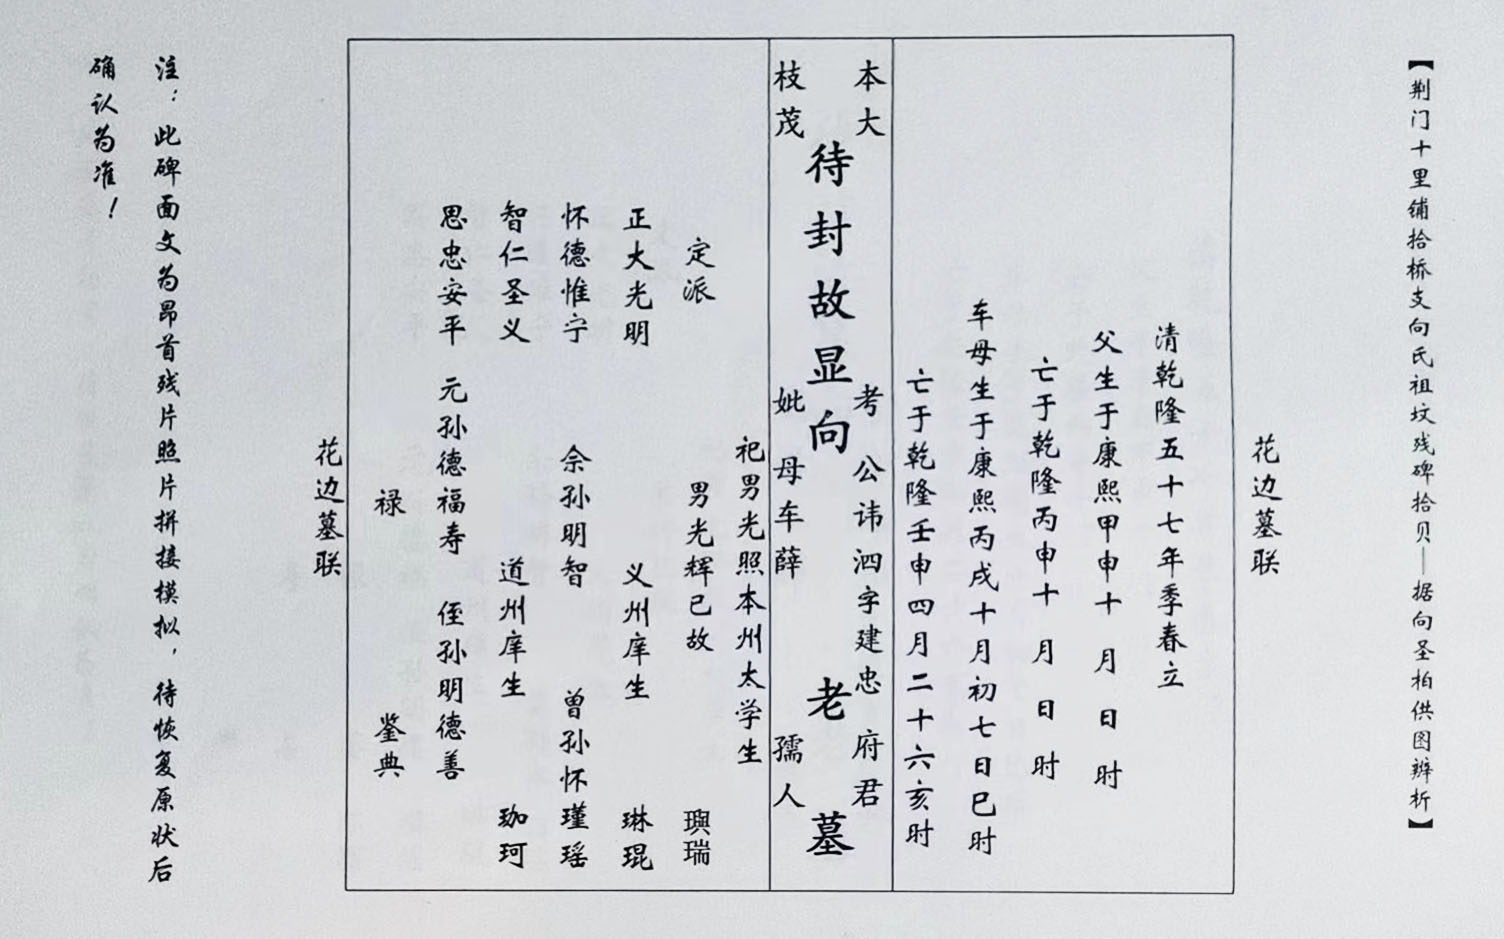 【荆门十里铺拾桥支向氏祖坟残碑拾贝——据向圣柏供图辨析】
花边墓联
清乾隆五十七年季春立
父生于康熙甲申十 月 日 时
亡于乾隆丙申十 月 日 时
车母生于康熙丙戌十月初七日巳时
亡于乾隆壬申四月二十六亥时
本大 考 公讳泗字建忠 府君
待封故显向 老 墓
枝茂 妣 母车薛 孺人
祀男光照本州太学生
定派 男光辉已故 璵瑞
正大光明 义州庠生 琳琨
怀德惟宁 余孙明智 曾孙怀瑾瑶
智仁圣义 道州庠生 珈珂
思忠安平 元孙德福寿 侄孙明德善
禄 鉴典
花边墓联
注：此碑面文为昂首残片照片拼接模拟，待恢复原状后
确认为准！